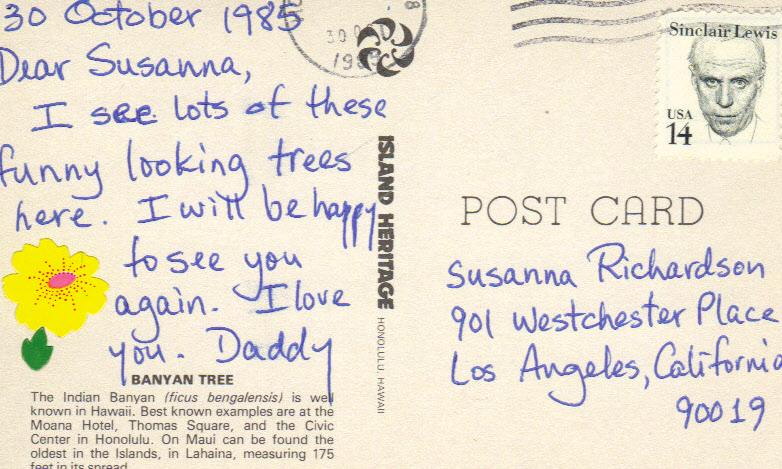 30 October 1985
Dear Susanna,
I see lots of these
funny looking trees
here. I will be happy
to see you
again. I love
you. Daddy
BANYAN TREE
The Indian Banyan (ficus bengalensis) is well
known in Hawaii. Best known examples are at the
Moana Hotel, Thomas Square, and the Civic
Center in Honolulu. On Maui can be found the
oldest in the Islands, in Lahaina, measuring 175
feet in its spread.
ISLAND HERITAGE
HONOLULU, HAWAII
30
Sinclair Lewis
USA
14
POST CARD
Susanna Richardson
901 Westchester Place
Los Angeles, California
90019